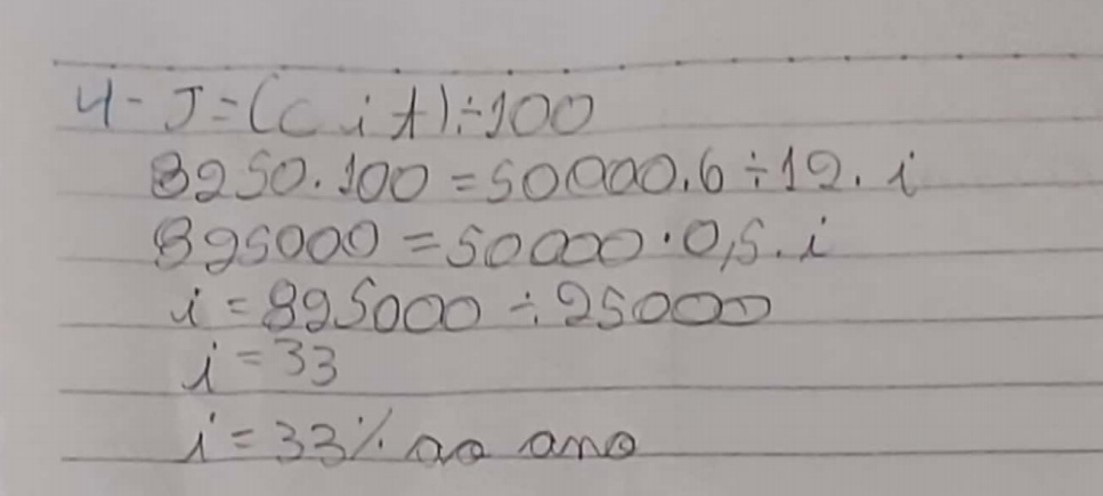 4- J=(C i t)÷100
8250.100=50000.6÷12.i
825000=50000.0,5.i
i=825000÷25000
i=33
i=33% ao ano